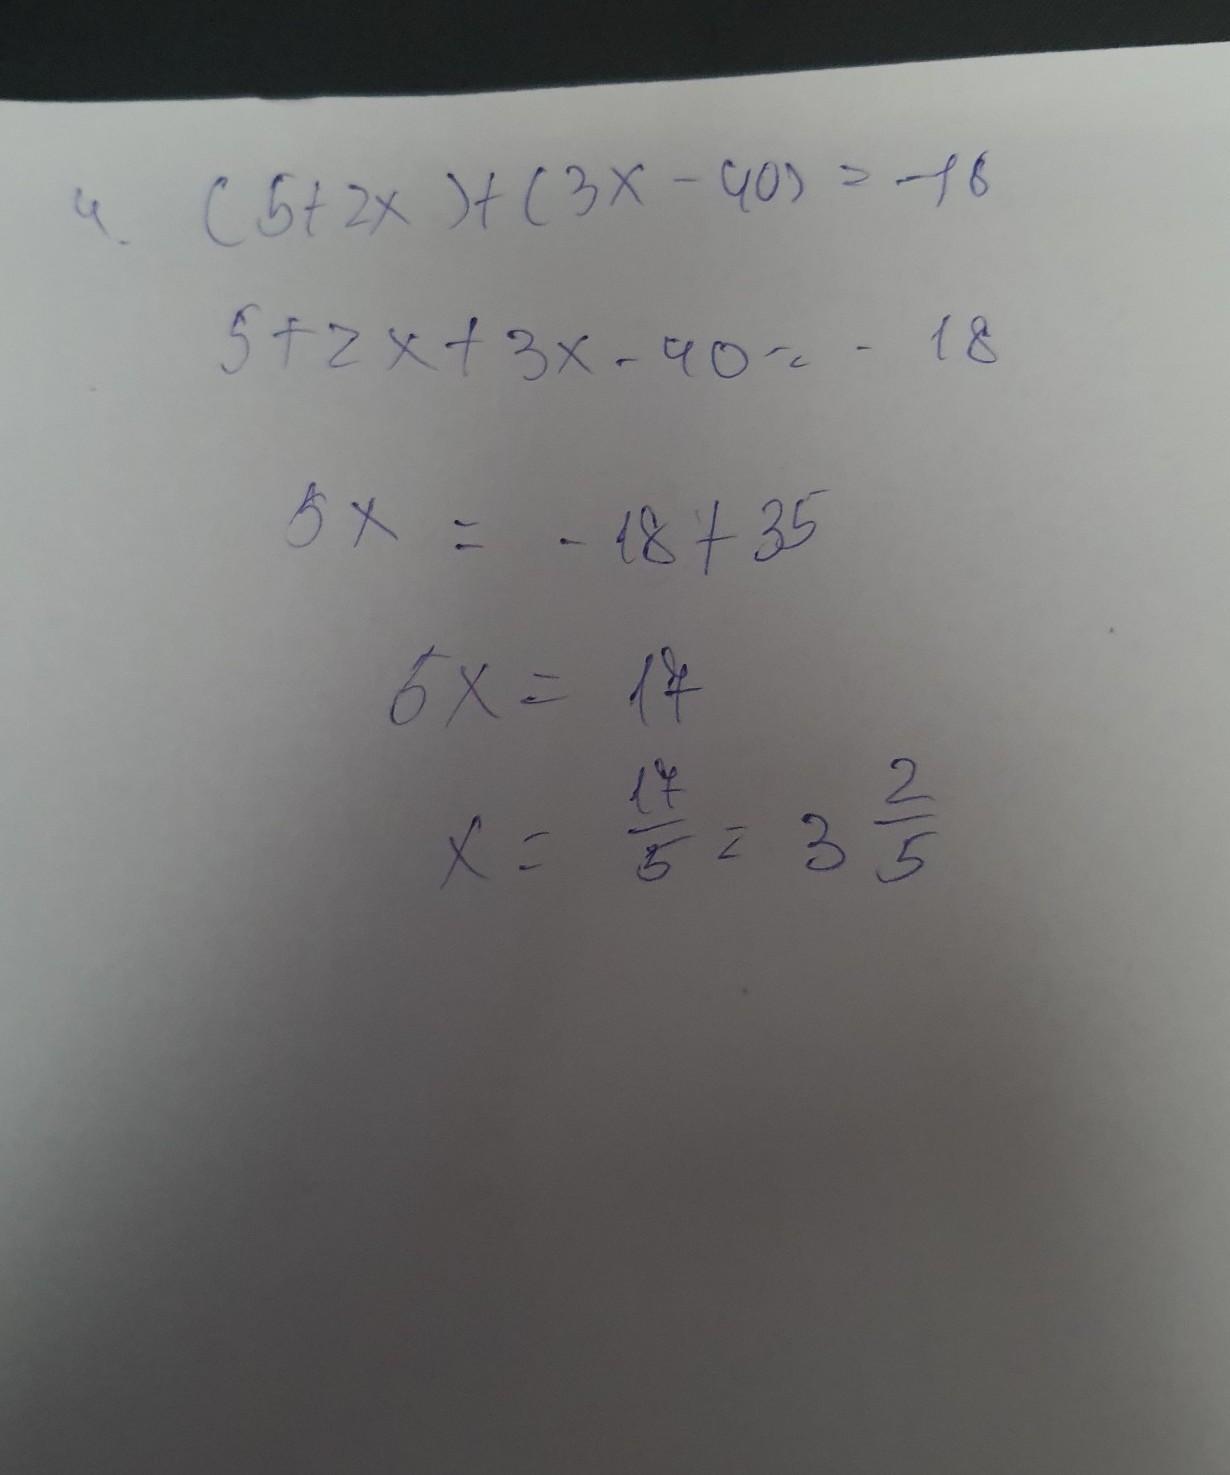 4. (5+2x)+(3x-40) = -18
5+2x+3x-40 = - 18
5x = -18+35
5x = 17
x = 17/5 = 3 2/5